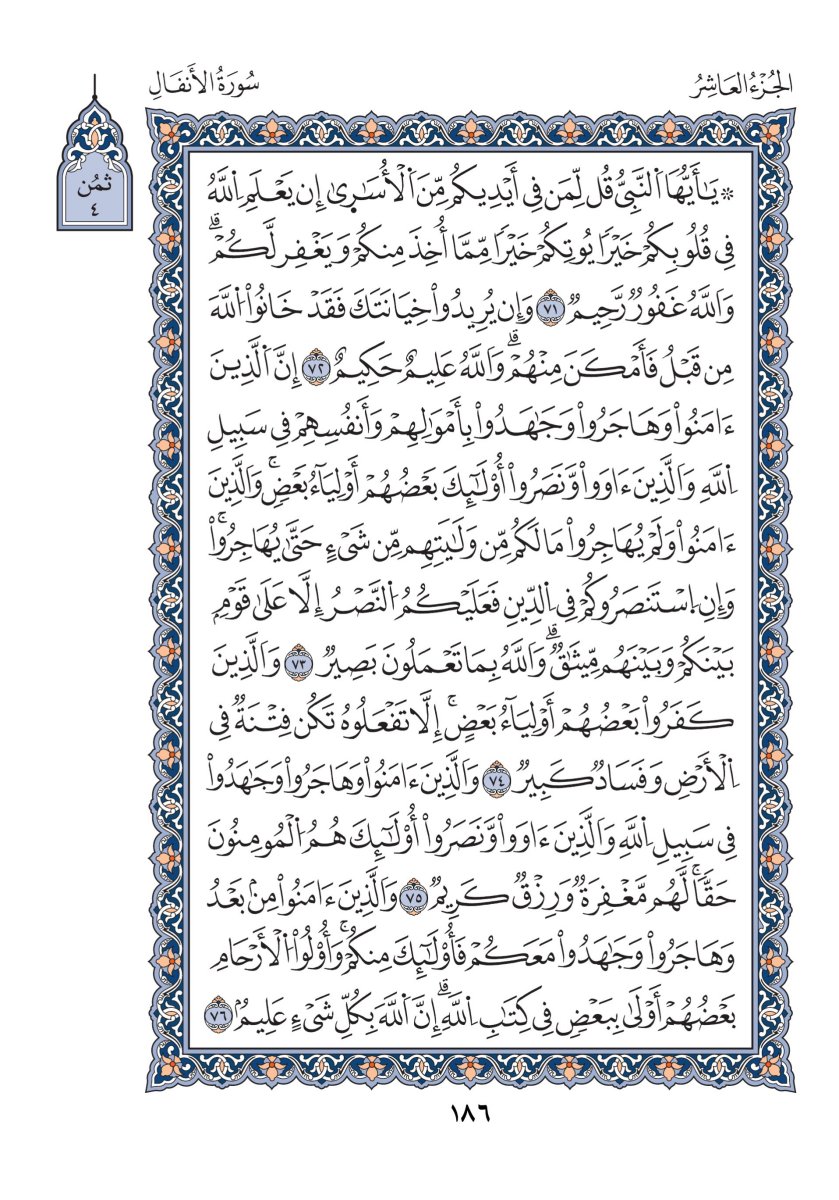 الجُزْءُ العَاشِرُ
سُورَةُ الأَنفَالِ
ثُمُن
٤
۞ يَٰٓأَيُّهَا اَ۬لنَّبِيُّ قُل لِّمَن فِےٓ أَيْدِيكُم مِّنَ اَ۬لْأُسَٰر۪ىٰٓ إِن يَعْلَمِ اِ۬للَّهُ
فِے قُلُوبِكُمْ خَيْراٗ يُوتِكُمْ خَيْراٗ مِّمَّآ أُخِذَ مِنكُمْ وَيَغْفِر لَّكُمْۖ
وَاللَّهُ غَفُورٞ رَّحِيمٞ ٧١ وَإِن يُرِيدُواْ خِيَانَتَكَ فَقَدْ خَانُواْ اُ۬للَّهَ
مِن قَبْلُ فَأَمْكَنَ مِنْهُمْۖ وَاللَّهُ عَلِيمٌ حَكِيمٌ ٧٢ إِنَّ اَ۬لَّذِينَ
ءَامَنُواْ وَهَاجَرُواْ وَجَٰهَدُواْ بِأَمْوَٰلِهِمْ وَأَنفُسِهِمْ فِے سَبِيلِ
اِ۬للَّهِ وَالَّذِينَ ءَاوَواْ وَّنَصَرُوٓاْ أُوْلَٰٓئِكَ بَعْضُهُمْ أَوْلِيَآءُ بَعْضٖۚ وَالَّذِينَ
ءَامَنُواْ وَلَمْ يُهَاجِرُواْ مَا لَكُم مِّن وَلَٰيَتِهِم مِّن شَےْءٍ حَتَّىٰ يُهَاجِرُواْۚ
وَإِنِ اِ۪سْتَنصَرُوكُمْ فِے اِ۬لدِّينِ فَعَلَيْكُمُ اُ۬لنَّصْرُ إِلَّا عَلَىٰ قَوْمِۢ
بَيْنَكُمْ وَبَيْنَهُم مِّيثَٰقٞۖ وَاللَّهُ بِمَا تَعْمَلُونَ بَصِيرٞ ٧٣ وَالَّذِينَ
كَفَرُواْ بَعْضُهُمْ أَوْلِيَآءُ بَعْضٍۚ إِلَّا تَفْعَلُوهُ تَكُن فِتْنَةٞ فِے
اِ۬لْأَرْضِ وَفَسَادٞ كَبِيرٞ ٧٤ وَالَّذِينَ ءَامَنُواْ وَهَاجَرُواْ وَجَٰهَدُواْ
فِے سَبِيلِ اِ۬للَّهِ وَالَّذِينَ ءَاوَواْ وَّنَصَرُوٓاْ أُوْلَٰٓئِكَ هُمُ اُ۬لْمُومِنُونَ
حَقّاٗۚ لَّهُم مَّغْفِرَةٞ وَرِزْقٞ كَرِيمٞ ٧٥ وَالَّذِينَ ءَامَنُواْ مِنۢ بَعْدُ
وَهَاجَرُواْ وَجَٰهَدُواْ مَعَكُمْ فَأُوْلَٰٓئِكَ مِنكُمْۚ وَأُوْلُواْ اُ۬لْأَرْحَامِ
بَعْضُهُمْ أَوْلَىٰ بِبَعْضٖ فِے كِتَٰبِ اِ۬للَّهِۖ إِنَّ اَ۬للَّهَ بِكُلِّ شَےْءٍ عَلِيمٌۢ ٧٦
١٨٦